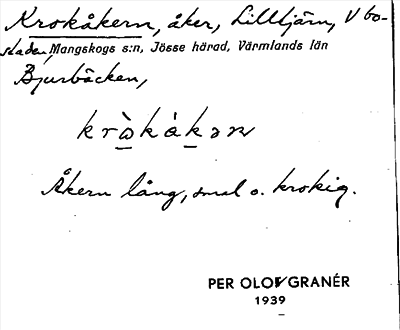 Krokåkern, åker, Lilltjärn, V bo-
staden, Mangskogs s:n, Jösse härad, Värmlands län
Bjurbäcken,
kràkákən
Åkern lång, smal o. krokig.
PER OLOF GRANÉR
1939